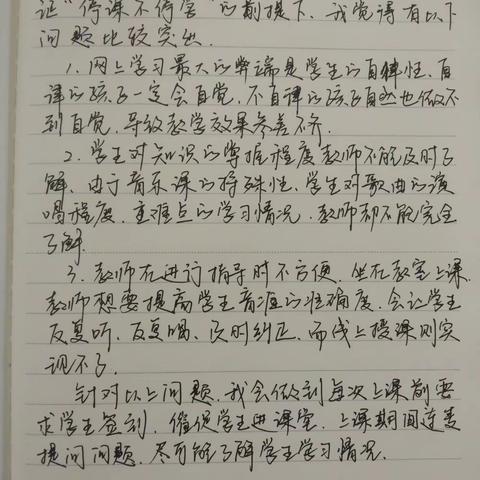 证“停课不停学”的前提下，我觉得有以下
问题比较突出.
1. 网上学习最大的弊端是学生的自律性，自
律的孩子一定会自觉，不自律的孩子自然也做不
到自觉，导致教学效果参差不齐.
2. 学生对知识的掌握程度教师不能及时了
解，由于音乐课的特殊性，学生对歌曲的演
唱程度，重难点的学习情况，教师却不能完全
了解.
3. 教师在进行指导时不方便，坐在教室上课，
教师想要提高学生音准的准确度，会让学生
反复听，反复唱，及时纠正，而线上授课则实
现不了.
针对以上问题，我会做到每次上课前要
求学生签到，催促学生进课堂，上课期间连麦
提问问题，尽可能了解学生学习情况.